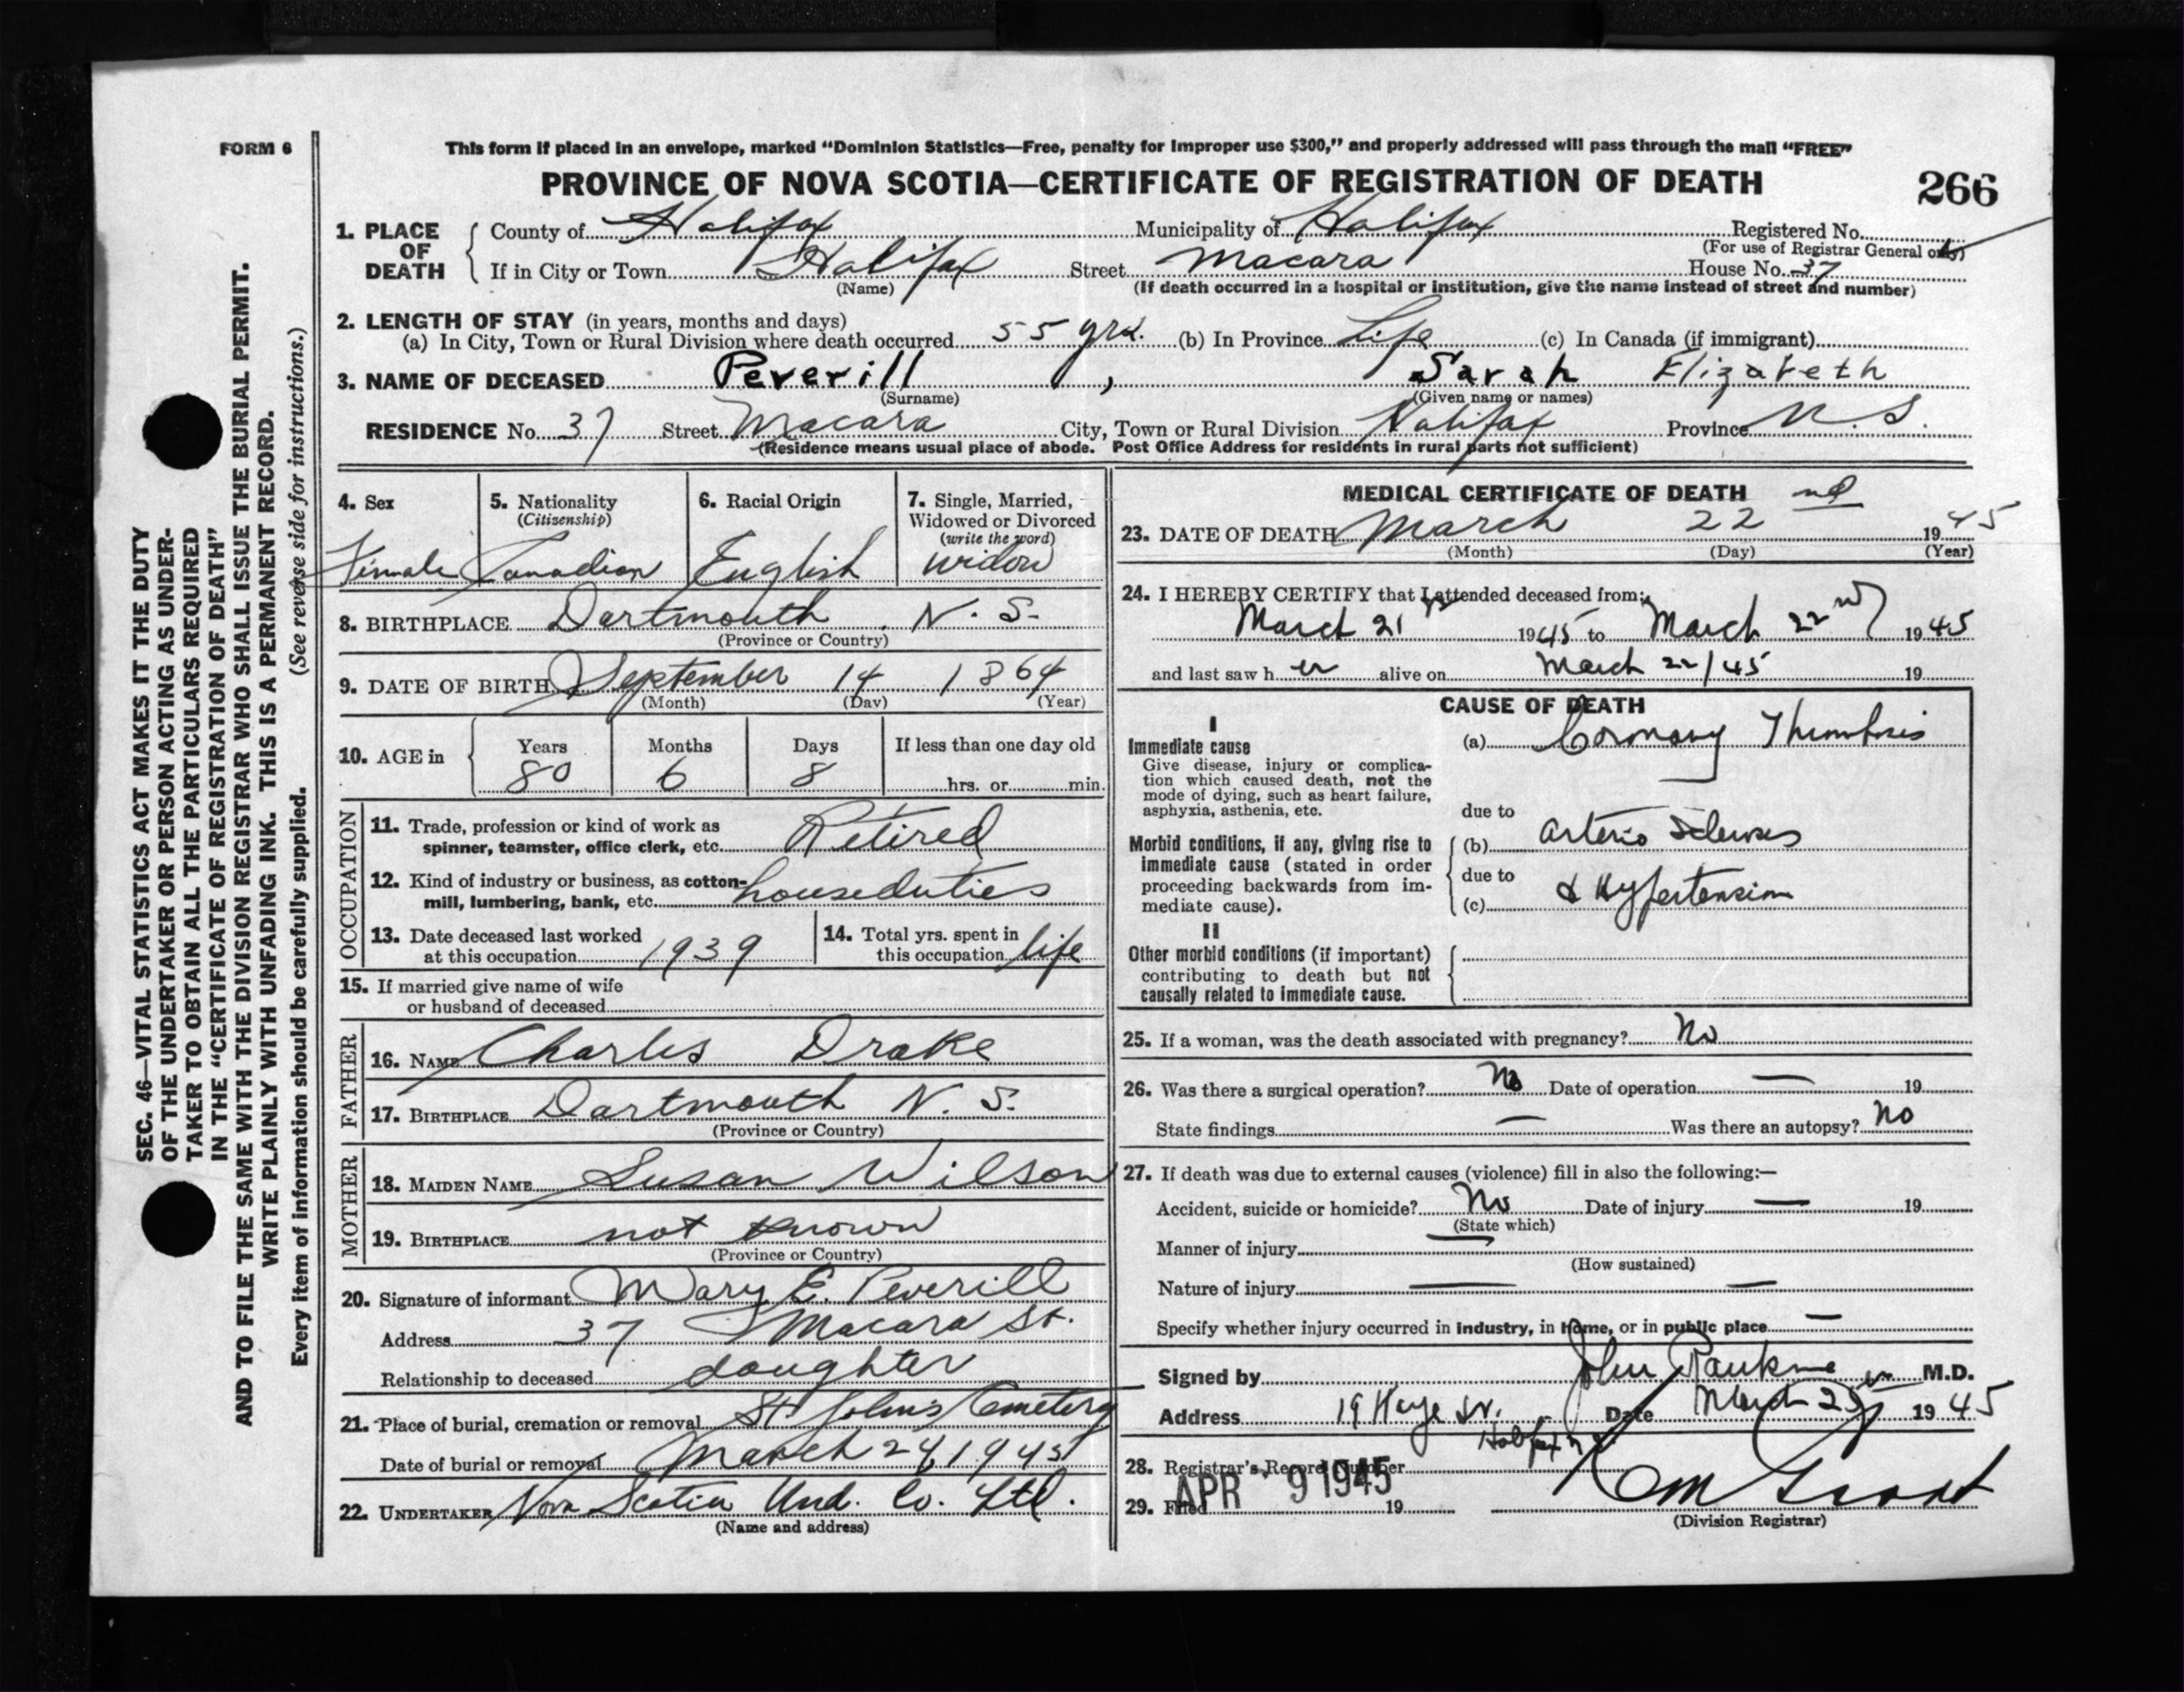 FORM 6
This form if placed in an envelope, marked “Dominion Statistics—Free, penalty for improper use $300,” and properly addressed will pass through the mail “FREE”
PROVINCE OF NOVA SCOTIA—CERTIFICATE OF REGISTRATION OF DEATH 266
1. PLACE OF DEATH
County of Halifax Municipality of Halifax Registered No.
(For use of Registrar General only)
If in City or Town Halifax Street Macara House No. 37
(Name) (If death occurred in a hospital or institution, give the name instead of street and number)
2. LENGTH OF STAY (in years, months and days)
(a) In City, Town or Rural Division where death occurred 55 yrs. (b) In Province Life (c) In Canada (if immigrant)
3. NAME OF DECEASED Peverill, Sarah Elizabeth
(Surname) (Given name or names)
RESIDENCE No. 37 Street Macara City, Town or Rural Division Halifax Province N. S.
(Residence means usual place of abode. Post Office Address for residents in rural parts not sufficient)
4. Sex
Female
5. Nationality
(Citizenship)
Canadian
6. Racial Origin
English
7. Single, Married,
Widowed or Divorced
(write the word)
widow
8. BIRTHPLACE Dartmouth, N. S.
(Province or Country)
9. DATE OF BIRTH September 14 1864
(Month) (Day) (Year)
10. AGE in Years Months Days If less than one day old
80 6 8 hrs. or min.
OCCUPATION
11. Trade, profession or kind of work as
spinner, teamster, office clerk, etc. Retired
12. Kind of industry or business, as cotton-
mill, lumbering, bank, etc. houseduties
13. Date deceased last worked
at this occupation 1939
14. Total yrs. spent in
this occupation life
15. If married give name of wife
or husband of deceased
FATHER
16. NAME Charles Drake
17. BIRTHPLACE Dartmouth N. S.
(Province or Country)
MOTHER
18. MAIDEN NAME Susan Wilson
19. BIRTHPLACE not known
(Province or Country)
20. Signature of informant Mary E. Peverill
Address 37 Macara St.
Relationship to deceased daughter
21. Place of burial, cremation or removal St John's Cemetery
Date of burial or removal March 24, 1945
22. UNDERTAKER Nova Scotia Und. Co. Ltd.
(Name and address)
MEDICAL CERTIFICATE OF DEATH
23. DATE OF DEATH March 22nd 1945
(Month) (Day) (Year)
24. I HEREBY CERTIFY that I attended deceased from:
March 21st 1945 to March 22nd 1945
and last saw her alive on March 22/45 19
CAUSE OF DEATH
I
Immediate cause
Give disease, injury or complica-
tion which caused death, not the
mode of dying, such as heart failure,
asphyxia, asthenia, etc.
(a) Coronary Thrombosis
due to
Morbid conditions, if any, giving rise to
immediate cause (stated in order
proceeding backwards from im-
mediate cause).
(b) Arterio Sclerosis
due to
(c) & Hypertension
II
Other morbid conditions (if important)
contributing to death but not
causally related to immediate cause.
25. If a woman, was the death associated with pregnancy? No
26. Was there a surgical operation? No Date of operation — 19
State findings — Was there an autopsy? No
27. If death was due to external causes (violence) fill in also the following:—
Accident, suicide or homicide? No Date of injury — 19
(State which)
Manner of injury —
(How sustained)
Nature of injury — —
Specify whether injury occurred in Industry, in Home, or in public place —
Signed by John M.D.
Address 19 Kaye St. Halifax N.S. Date March 1945
28. Registrar's Record Number
29. Filed APR 9 1945 19
(Division Registrar)
SEC. 46—VITAL STATISTICS ACT MAKES IT THE DUTY
OF THE UNDERTAKER OR PERSON ACTING AS UNDER-
TAKER TO OBTAIN ALL THE PARTICULARS REQUIRED
IN THE “CERTIFICATE OF REGISTRATION OF DEATH”
AND TO FILE THE SAME WITH THE DIVISION REGISTRAR WHO SHALL ISSUE THE BURIAL PERMIT.
WRITE PLAINLY WITH UNFADING INK. THIS IS A PERMANENT RECORD.
Every item of information should be carefully supplied. (See reverse side for instructions.)